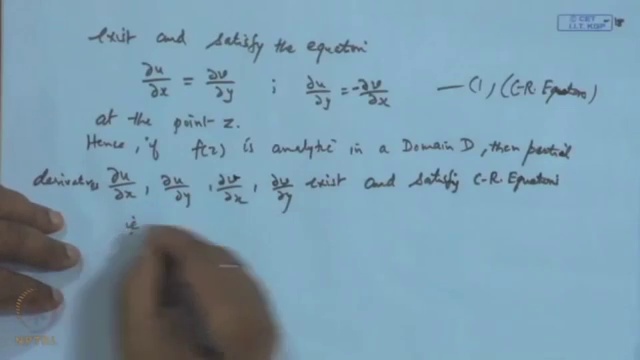 © CET
I.I.T. KGP
exist and satisfy the equation
∂u/∂x = ∂v/∂y ; ∂u/∂y = -∂v/∂x — (1) (C-R. Equations)
at the point z.
Hence, if f(z) is analytic in a Domain D, then partial
derivatives ∂u/∂x, ∂u/∂y, ∂v/∂x, ∂v/∂y exist and satisfy C-R. Equations
ie
NPTEL